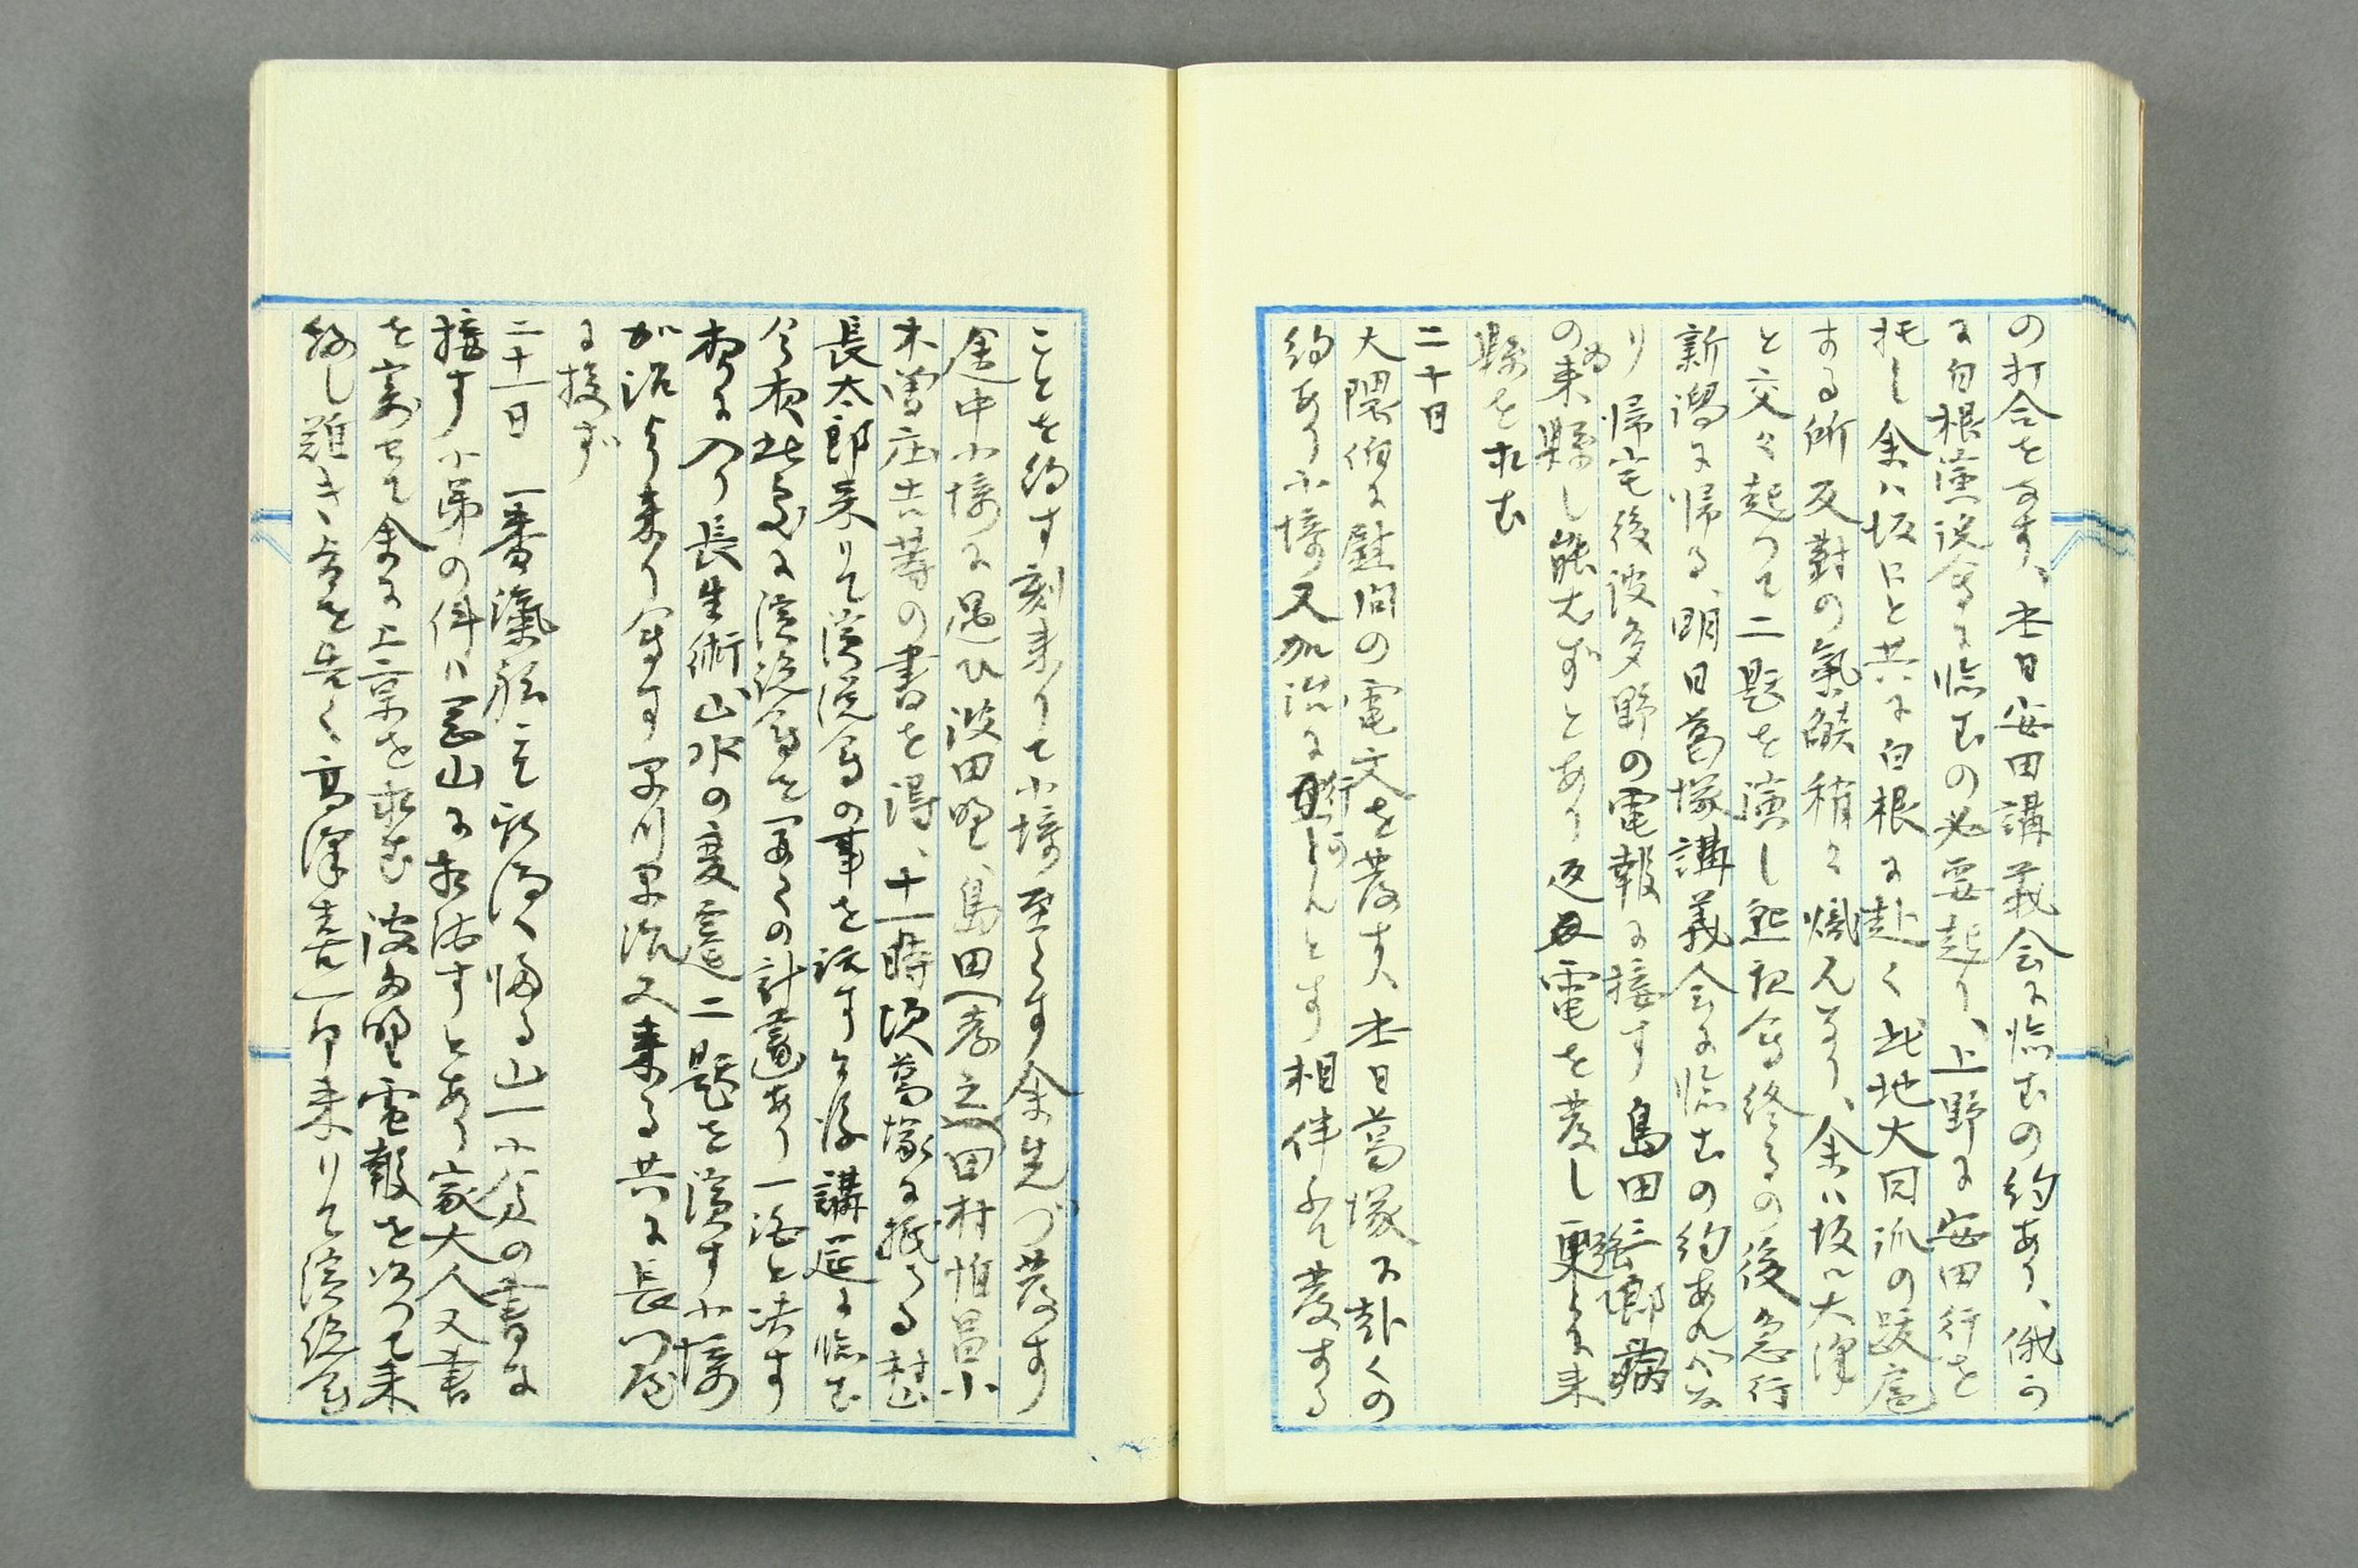 の打合をなす、本日安田講義会に臨むの約あり、俄か
に白根演説会に臨むの必要起り、上野に安田行を
托し余ハ坂口と共に白根に赴く此地大同派の跋扈
する所反對の氣燄稍々熾んなり、余ハ坂口大津
と交々起つて二題を演し懇親会終るの後急行
新潟に帰る、明日葛塚講義会に臨むの約あれバな
り 帰宅後波多野の電報に接す 島田三郎病
の為来縣し能はずとあり返電を發し更に来
縣を求む
二十日
大隈伯に慰問の電文を發す、本日葛塚に赴くの
約あり小塚又加治に行かんとす相伴ふて發する
ことを約す刻来りて小塚至らず余先づ發す
途中小塚に遇ひ波田野、島田(孝之)田村惟昌小
木曽庄吉等の書を得、十一時頃葛塚に抵る
長太郎来りて演説会の事を話す午後講莚に臨む
今夜此處に演説会を開くの計畫あり一泊と决す
夜に入り長生術山水の変遷二題を演す小塚
加治より来り会す早川早治又来る共に長門屋
に投ず
二十一日 一番滊船にて新潟へ帰る山一小倉の書に
接す小弟の件ハ昌山に相談すとあり家大人又書
を寄せて余に上京を求む波多野電報を以つて来
縣し難き旨を告く高津嘉一郎来りて演説会